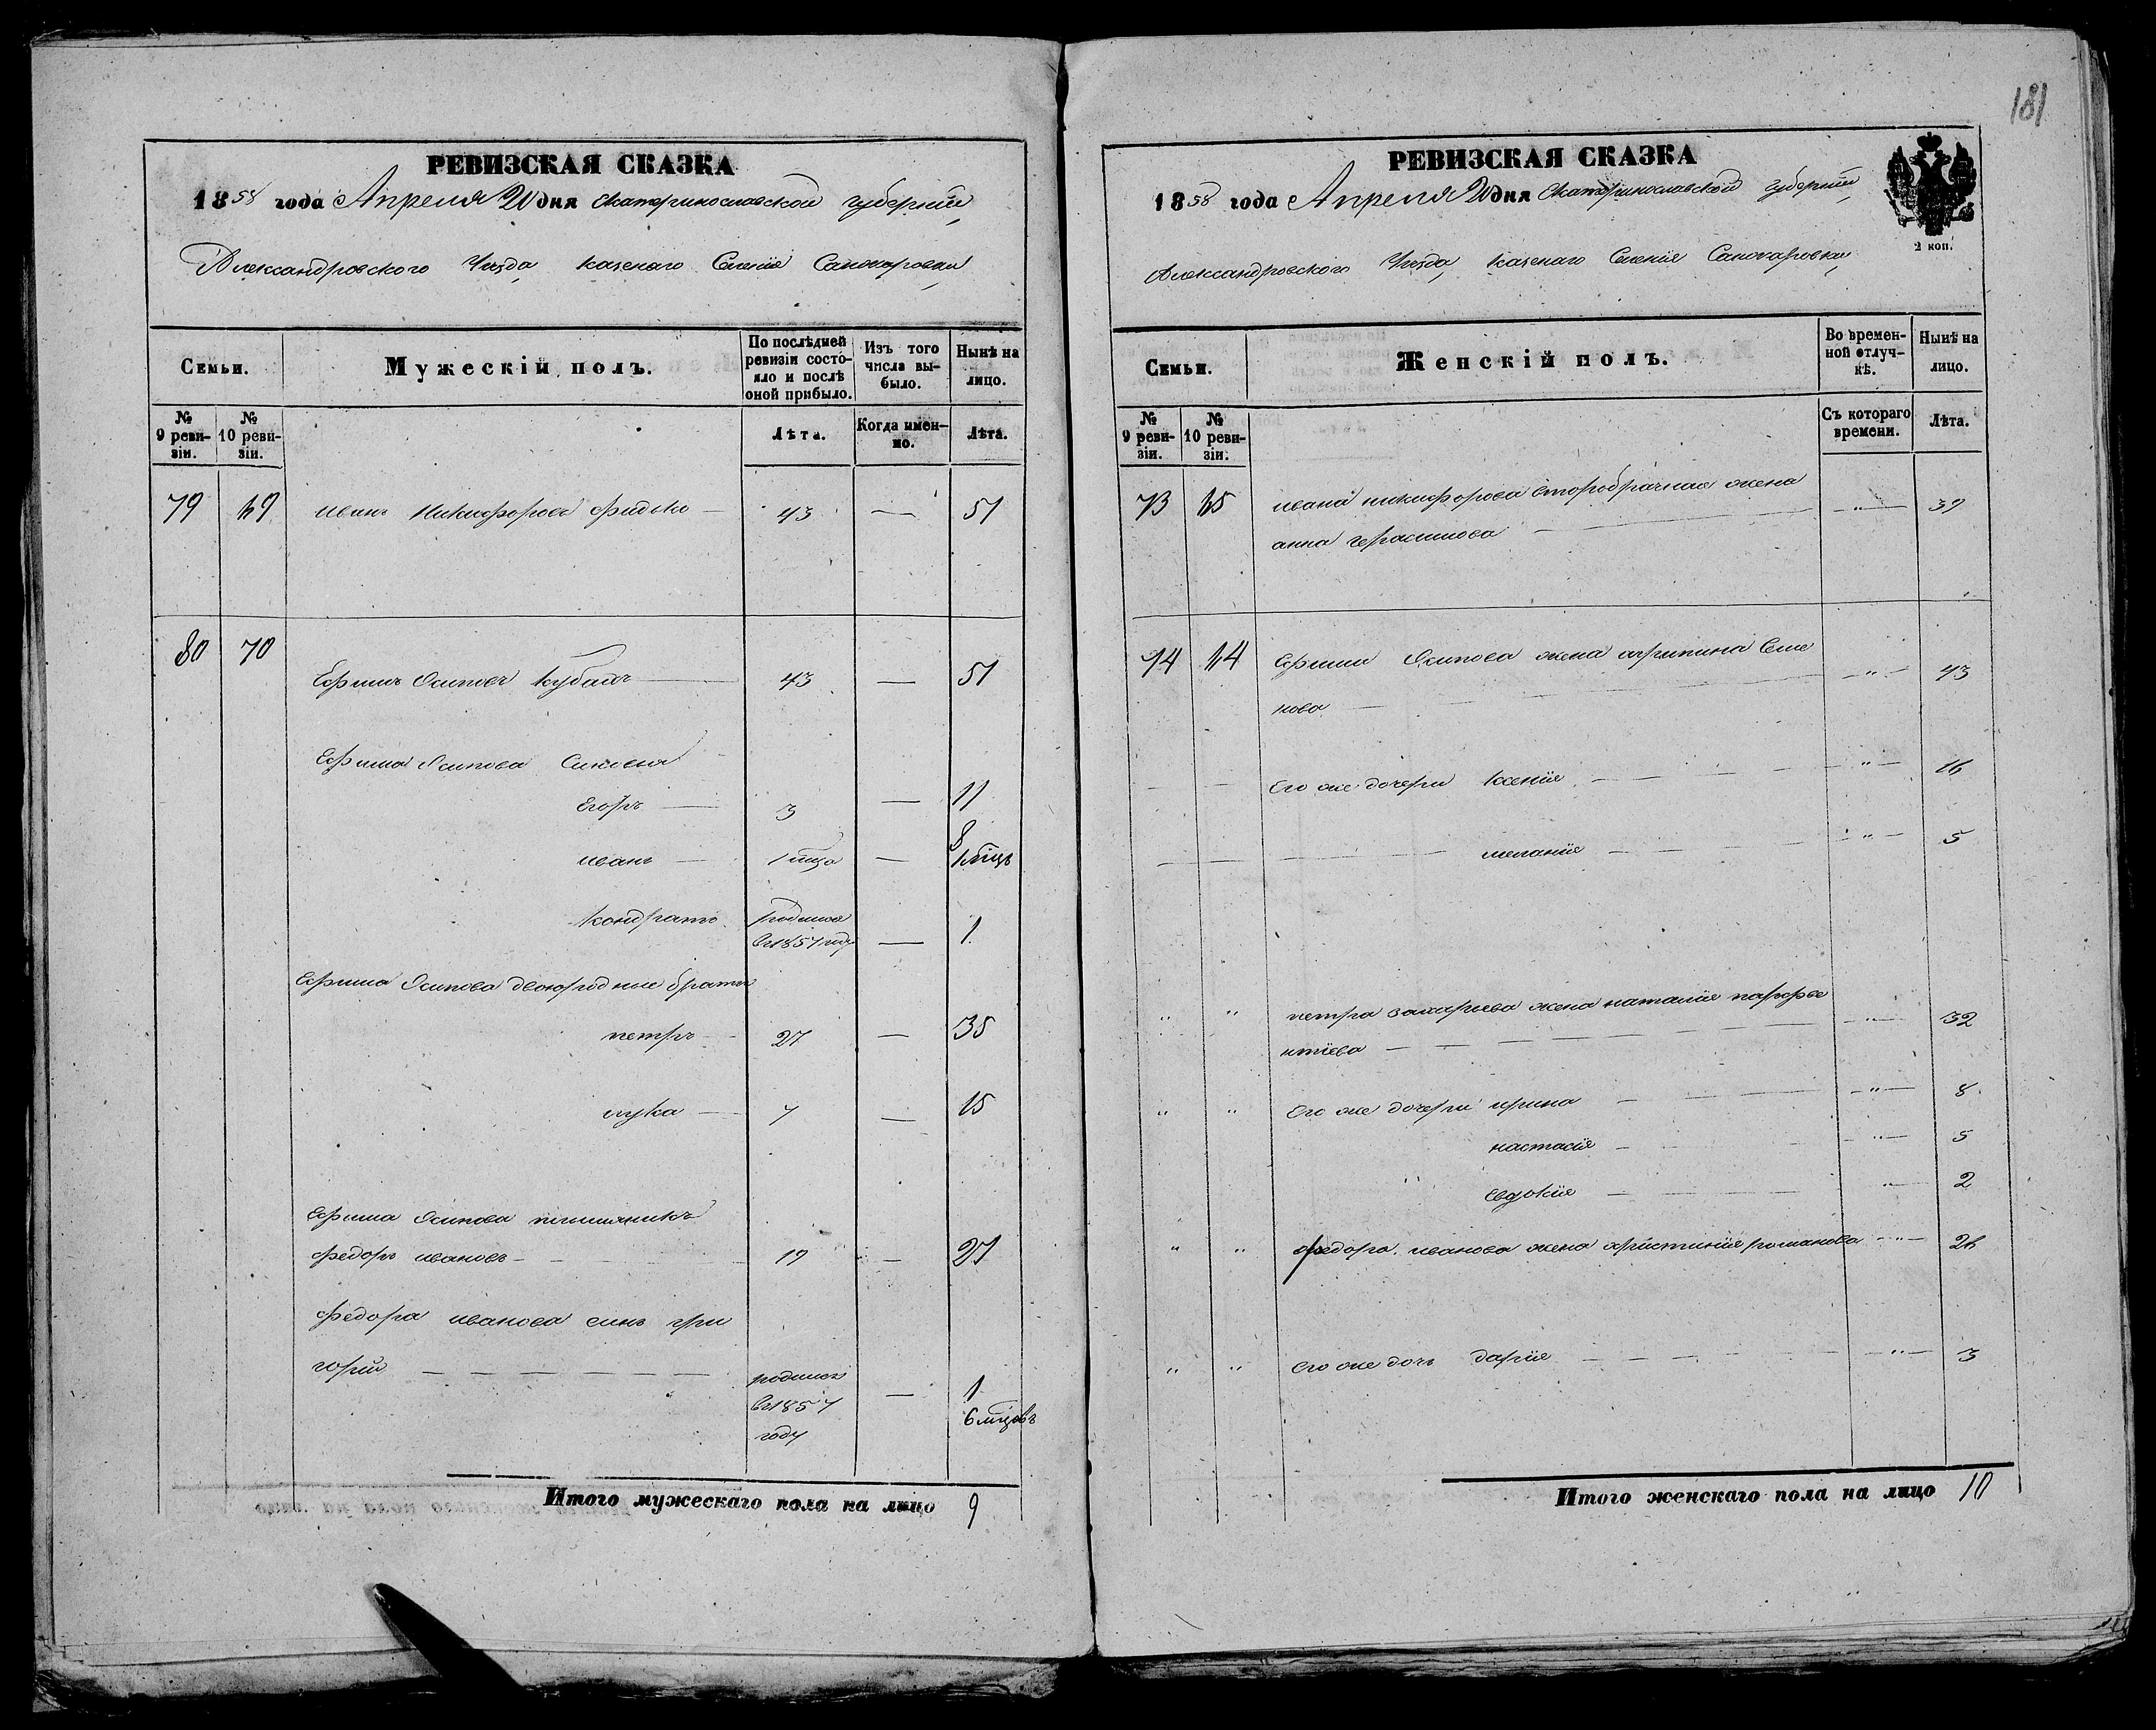 РЕВИЗСКАЯ СКАЗКА
1858 года Апреля 20 дня Екатеринославской губернии,
Александровского Уезда, казенаго Селенія
Семьи.
Мужескій полъ.
По послѣдней ревизіи состояло и послѣ оной прибыло.
Изъ того числа выбыло.
Нынѣ на лицо.
№ 9 ревизіи.
№ 10 ревизіи.
Лѣта.
Когда именно.
Лѣта.
79 69 иванъ Никифоровъ 43 — 51
80 70 Ефимъ Осиповъ 43 — 51
Ефима Осипова Сыновья
Егоръ — 3 — 11
иванъ — 1 мца — 8
1 мцъ
Кондратъ родился
въ 1857 году — 1
Ефима Осипова двоюродные братья
петръ — 27 — 35
лука — 7 — 15
Ефима Осипова племяникъ
Федоръ ивановъ — 19 — 27
Федора иванова синъ гри
горій — родился
въ 1857 — 1
году 6 мцовъ
Итого мужескаго пола на лицо 9
181
РЕВИЗСКАЯ СКАЗКА
1858 года Апреля 20 дня Екатеринославской губерніи,
2 коп.
Александровского Уезда, казенаго Селенія
Семьи.
Женскій полъ.
Во временной отлучкѣ.
Нынѣ на лицо.
№ 9 ревизіи.
№ 10 ревизіи.
Съ котораго времени.
Лѣта.
ивана никифорова второбрачная жена — " — 39
анна герасимова —
Ефима Осипова жена агрипина Семе — " — 43
нова
Его же дочери Ксенія — " — 16
меланія — " — 5
" " петра захарьева жена наталія парфе — " — 32
нтіева —
" " Его же дочери ирина — " — 8
настасія — " — 5
" Евдокія — " — 2
" " федора иванова жена христинія романова — " — 26
" " его же дочь дарія — " — 3
Итого женскаго пола на лицо 10